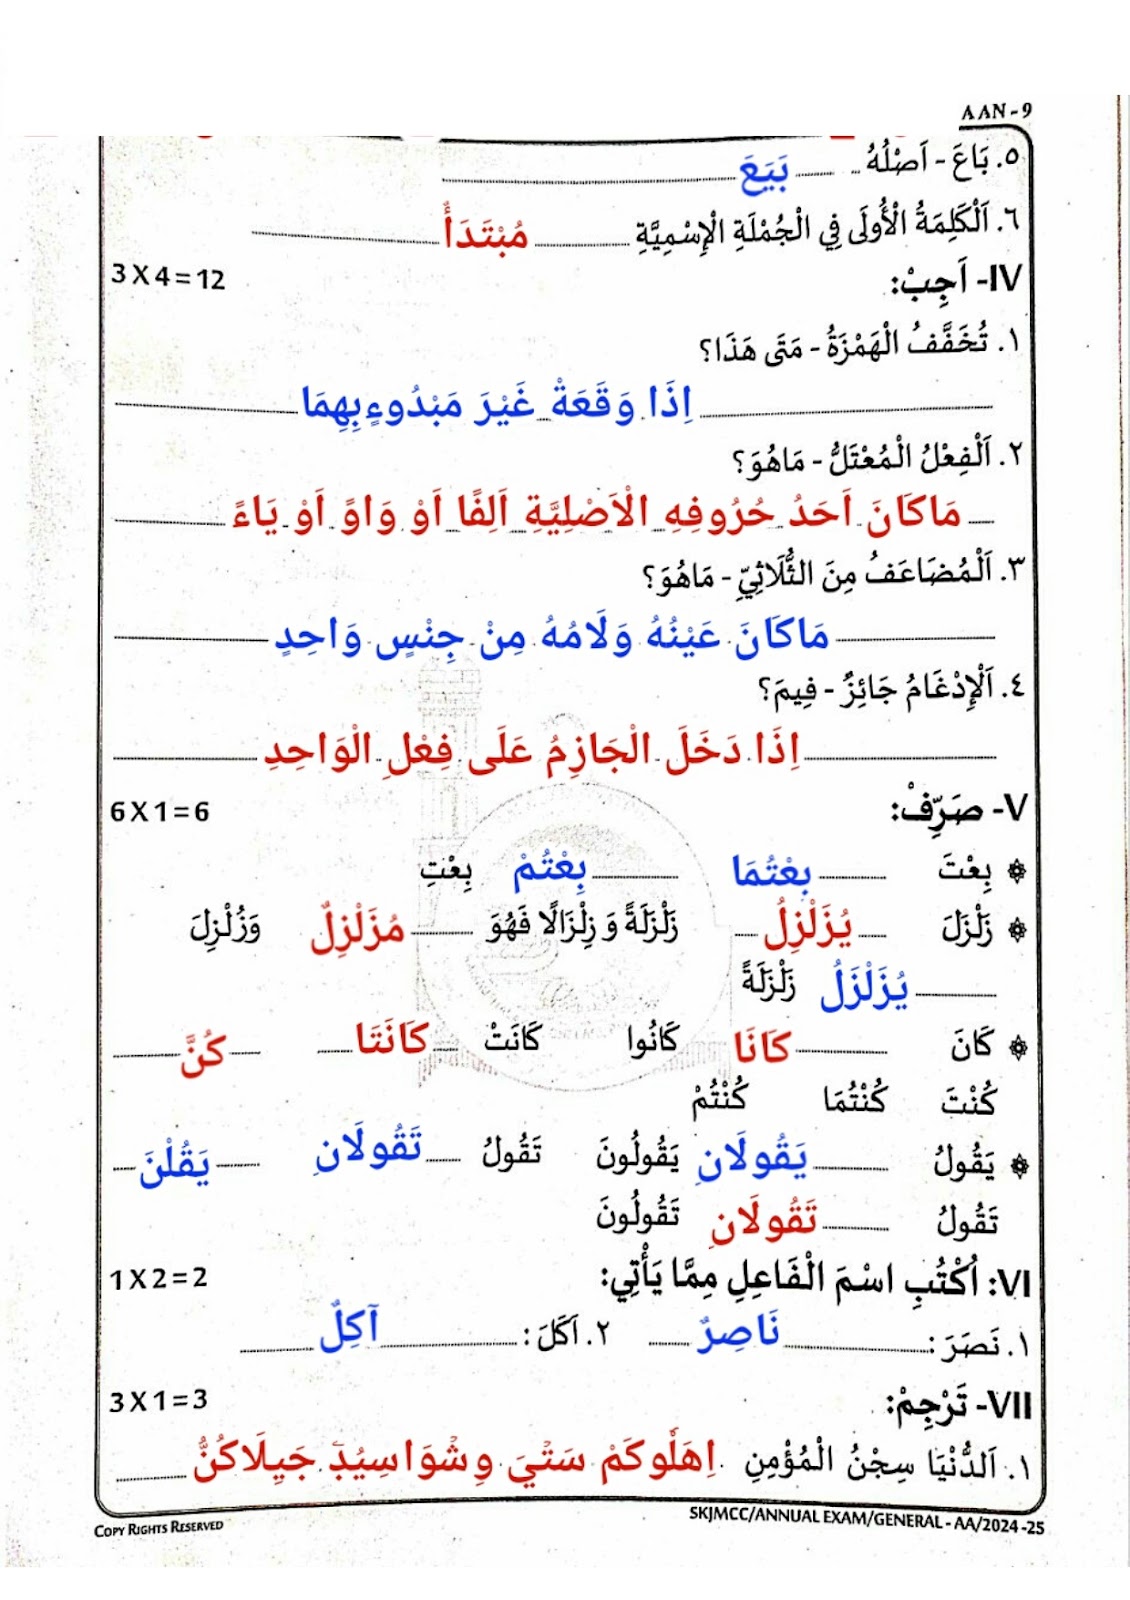 AAN-9
٥. بَاعَ - اَصْلُهُ بَيَعَ
٦. اَلْكَلِمَةُ الْأُولَى فِي الْجُمْلَةِ الْإِسْمِيَّةِ مُبْتَدَأٌ
IV- اَجِبْ: 3 X 4 = 12
١. تُخَفَّفُ الْهَمْزَةُ - مَتَى هَذَا؟
اِذَا وَقَعَةْ غَيْرَ مَبْدُوءٍ بِهِمَا
٢. اَلْفِعْلُ الْمُعْتَلُّ - مَاهُوَ؟
مَاكَانَ اَحَدُ حُرُوفِهِ الْاَصْلِيَّةِ اَلِفًا اَوْ وَاوً اَوْ يَاءً
٣. اَلْمُضَاعَفُ مِنَ الثُّلَاثِيِّ - مَاهُوَ؟
مَاكَانَ عَيْنُهُ وَلَامُهُ مِنْ جِنْسٍ وَاحِدٍ
٤. اَلْإِدْغَامُ جَائِزٌ - فِيمَ؟
اِذَا دَخَلَ الْجَازِمُ عَلَى فِعْلِ الْوَاحِدِ
V- صَرِّفْ: 6 X 1 = 6
بِعْتَ بِعْتُمَا بِعْتُمْ بِعْتِ
زَلْزَلَ يُزَلْزِلُ زَلْزَلَةً وَ زِلْزَالًا فَهُوَ مُزَلْزِلٌ وَزُلْزِلَ
يُزَلْزَلُ زَلْزَلَةً
كَانَ كَانَا كَانُوا كَانَتْ كَانَتَا كُنَّ
كُنْتَ كُنْتُمَا كُنْتُمْ
يَقُولُ يَقُولَانِ يَقُولُونَ تَقُولُ تَقُولَانِ يَقُلْنَ
تَقُولُ تَقُولَانِ تَقُولُونَ
VI: اُكْتُبِ اسْمَ الْفَاعِلِ مِمَّا يَأْتِي: 1 X 2 = 2
١. نَصَرَ : نَاصِرٌ ٢. اَكَلَ : آكِلٌ
VII- تَرْجِمْ: 3 X 1 = 3
١. اَلدُّنْيَا سِجْنُ الْمُؤْمِنِ اِهَلُوكَمْ سَتْيَ وِشْوَاسِيُدٜ جَيِلَاكُنُّ
COPY RIGHTS RESERVED
SKJMCC/ANNUAL EXAM/GENERAL - AA/2024 -25